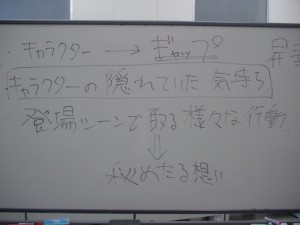 ・キャラクター → ギャップ
キャラクターの隠れていた気持ち
登場シーンで取る様々な行動
⇓
秘めたる想い